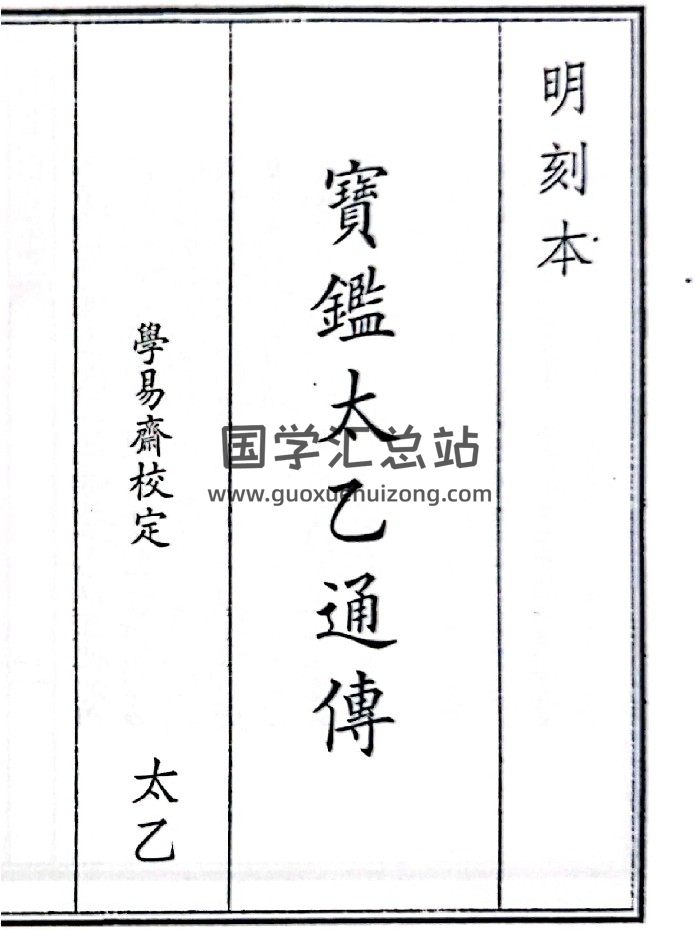 明刻本
寶鑑太乙通傳
學易齋校定
太乙
国学汇总站
www.guoxuehuizong.com